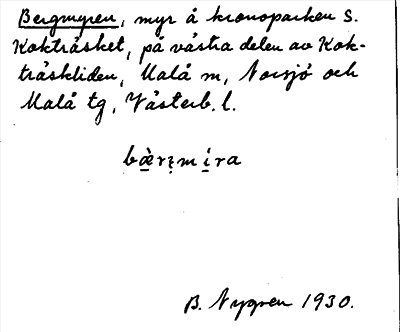 Bergmyren, myr å kronoparken S.
Kokträsket, på västra delen av Kok-
träskliden, Malå m, Norsjö och
Malå tg, Västerb. l.
bæ̀rʒmíra
B. Nygren 1930.